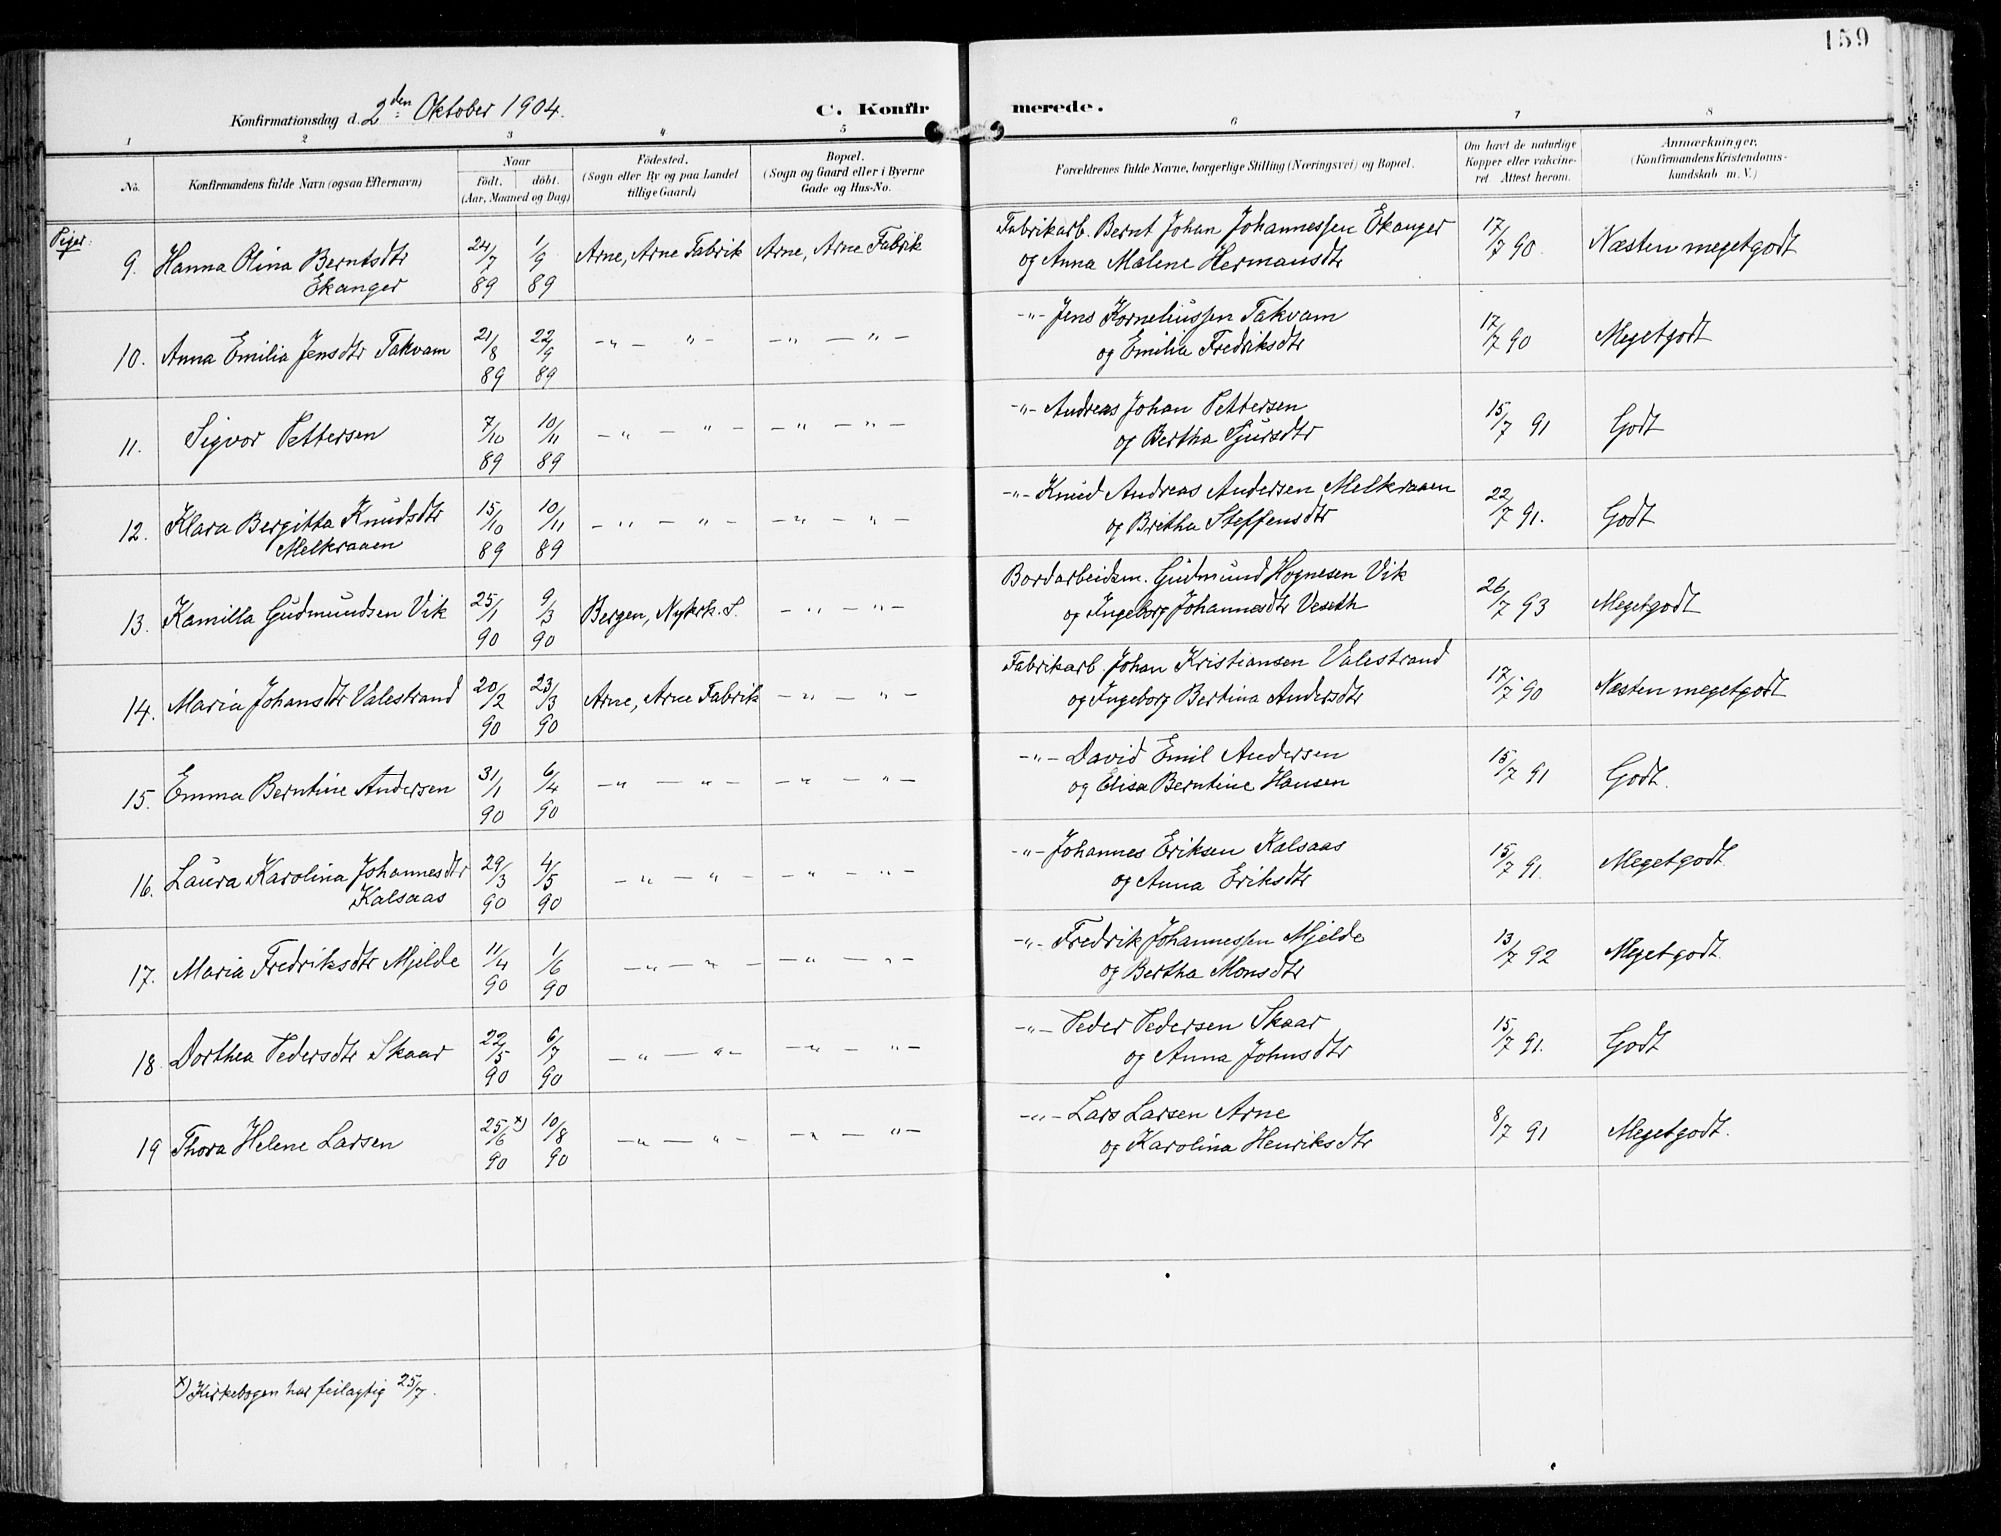 159
Konfirmationsdag d. 2den Oktober 1904. C. Konfirmerede.
1 2 3 4 5 6 7 8
No. Konfirmandens fulde Navn (ogsaa Efternavn) Naar födt. döbt. (Aar, Maaned og Dag) Födested. (Sogn eller By og paa Landet tillige Gaard) Bopæl. (Sogn og Gaard eller i Byerne Gade og Hus-No. Forældrenes fulde Navne, borgerlige Stilling (Næringsvei) og Bopæl. Om havt de naturlige Kopper eller vakcineret. Attest herom. Anmærkninger. (Konfirmandens Kristendomskundskab m. V.)
Piger:
9. Hanna Olina Berntsdtr Ekanger 24/7 89 1/9 89 Arne, Arne Fabrik Arne, Arne Fabrik Fabrikarb. Bernt Johan Johannessen Ekanger og Anna Malene Hermansdtr 17/7 90. Næsten megetgodt
10. Anna Emilia Jensdtr Takvam 21/8 89 22/9 89 -„- „- -„- „- -„- Jens Korneliussen Takvam og Emilia Fredriksdtr 17/7 90 Megetgodt
11. Sigvor Pettersen 7/10 89 10/11 89 -„- „- -„- „- -„- Andreas Johan Pettersen og Bertha Sjursdtr 15/7 91 Godt
12. Klara Bergitta Knudsdtr Melkraaen 15/10 89 10/11 89 -„- „- -„- „- -„- Knud Andreas Andersen Melkraaen og Britha Steffensdtr 22/7 91. Godt
13. Kamilla Gudmundsen Vik 25/1 90 9/3 90 Bergen, Nykrk. S. -„- „- Bordarbeidsm. Gudmund Hognesen Vik og Ingeborg Johannesdtr Veseth 26/7 93 Megetgodt
14. Maria Johansdtr Valestrand 20/2 90 23/3 90 Arne, Arne Fabrik -„- „- Fabrikarb. Johan Kristiansen Valestrand og Ingeborg Bertina Andersdtr 17/7 90 Næsten megetgodt
15. Emma Berntine Andersen 31/1 90 6/4 90 -„- „- -„- „- -„- David Emil Andersen og Elisa Berntine Hansen 15/7 91 Godt.
16. Laura Karolina Johannesdtr Kalsaas 29/3 90 4/5 90 -„- „- -„- „- -„- Johannes Eriksen Kalsaas og Anna Eriksdtr 15/7 91. Megetgodt.
17. Maria Fredriksdtr Mjelde 11/4 90 1/6 90 -„- „- -„- „- -„- Fredrik Johannessen Mjelde og Bertha Monsdtr 13/7 92 Megetgodt.
18. Dorthea Pedersdtr Skaar 22/5 90 6/7 90 -„- „- -„- „- -„- Peder Pedersen Skaar og Anna Johnsdtr 15/7 91. Godt
19 Thora Helene Larsen 25/6 x) 90 10/8 90 -„- „- -„- „- -„- Lars Larsen Arne og Karolina Henriksdtr 8/7 91 Megetgodt.
x) Kirkebogen har feilagtig 25/7.